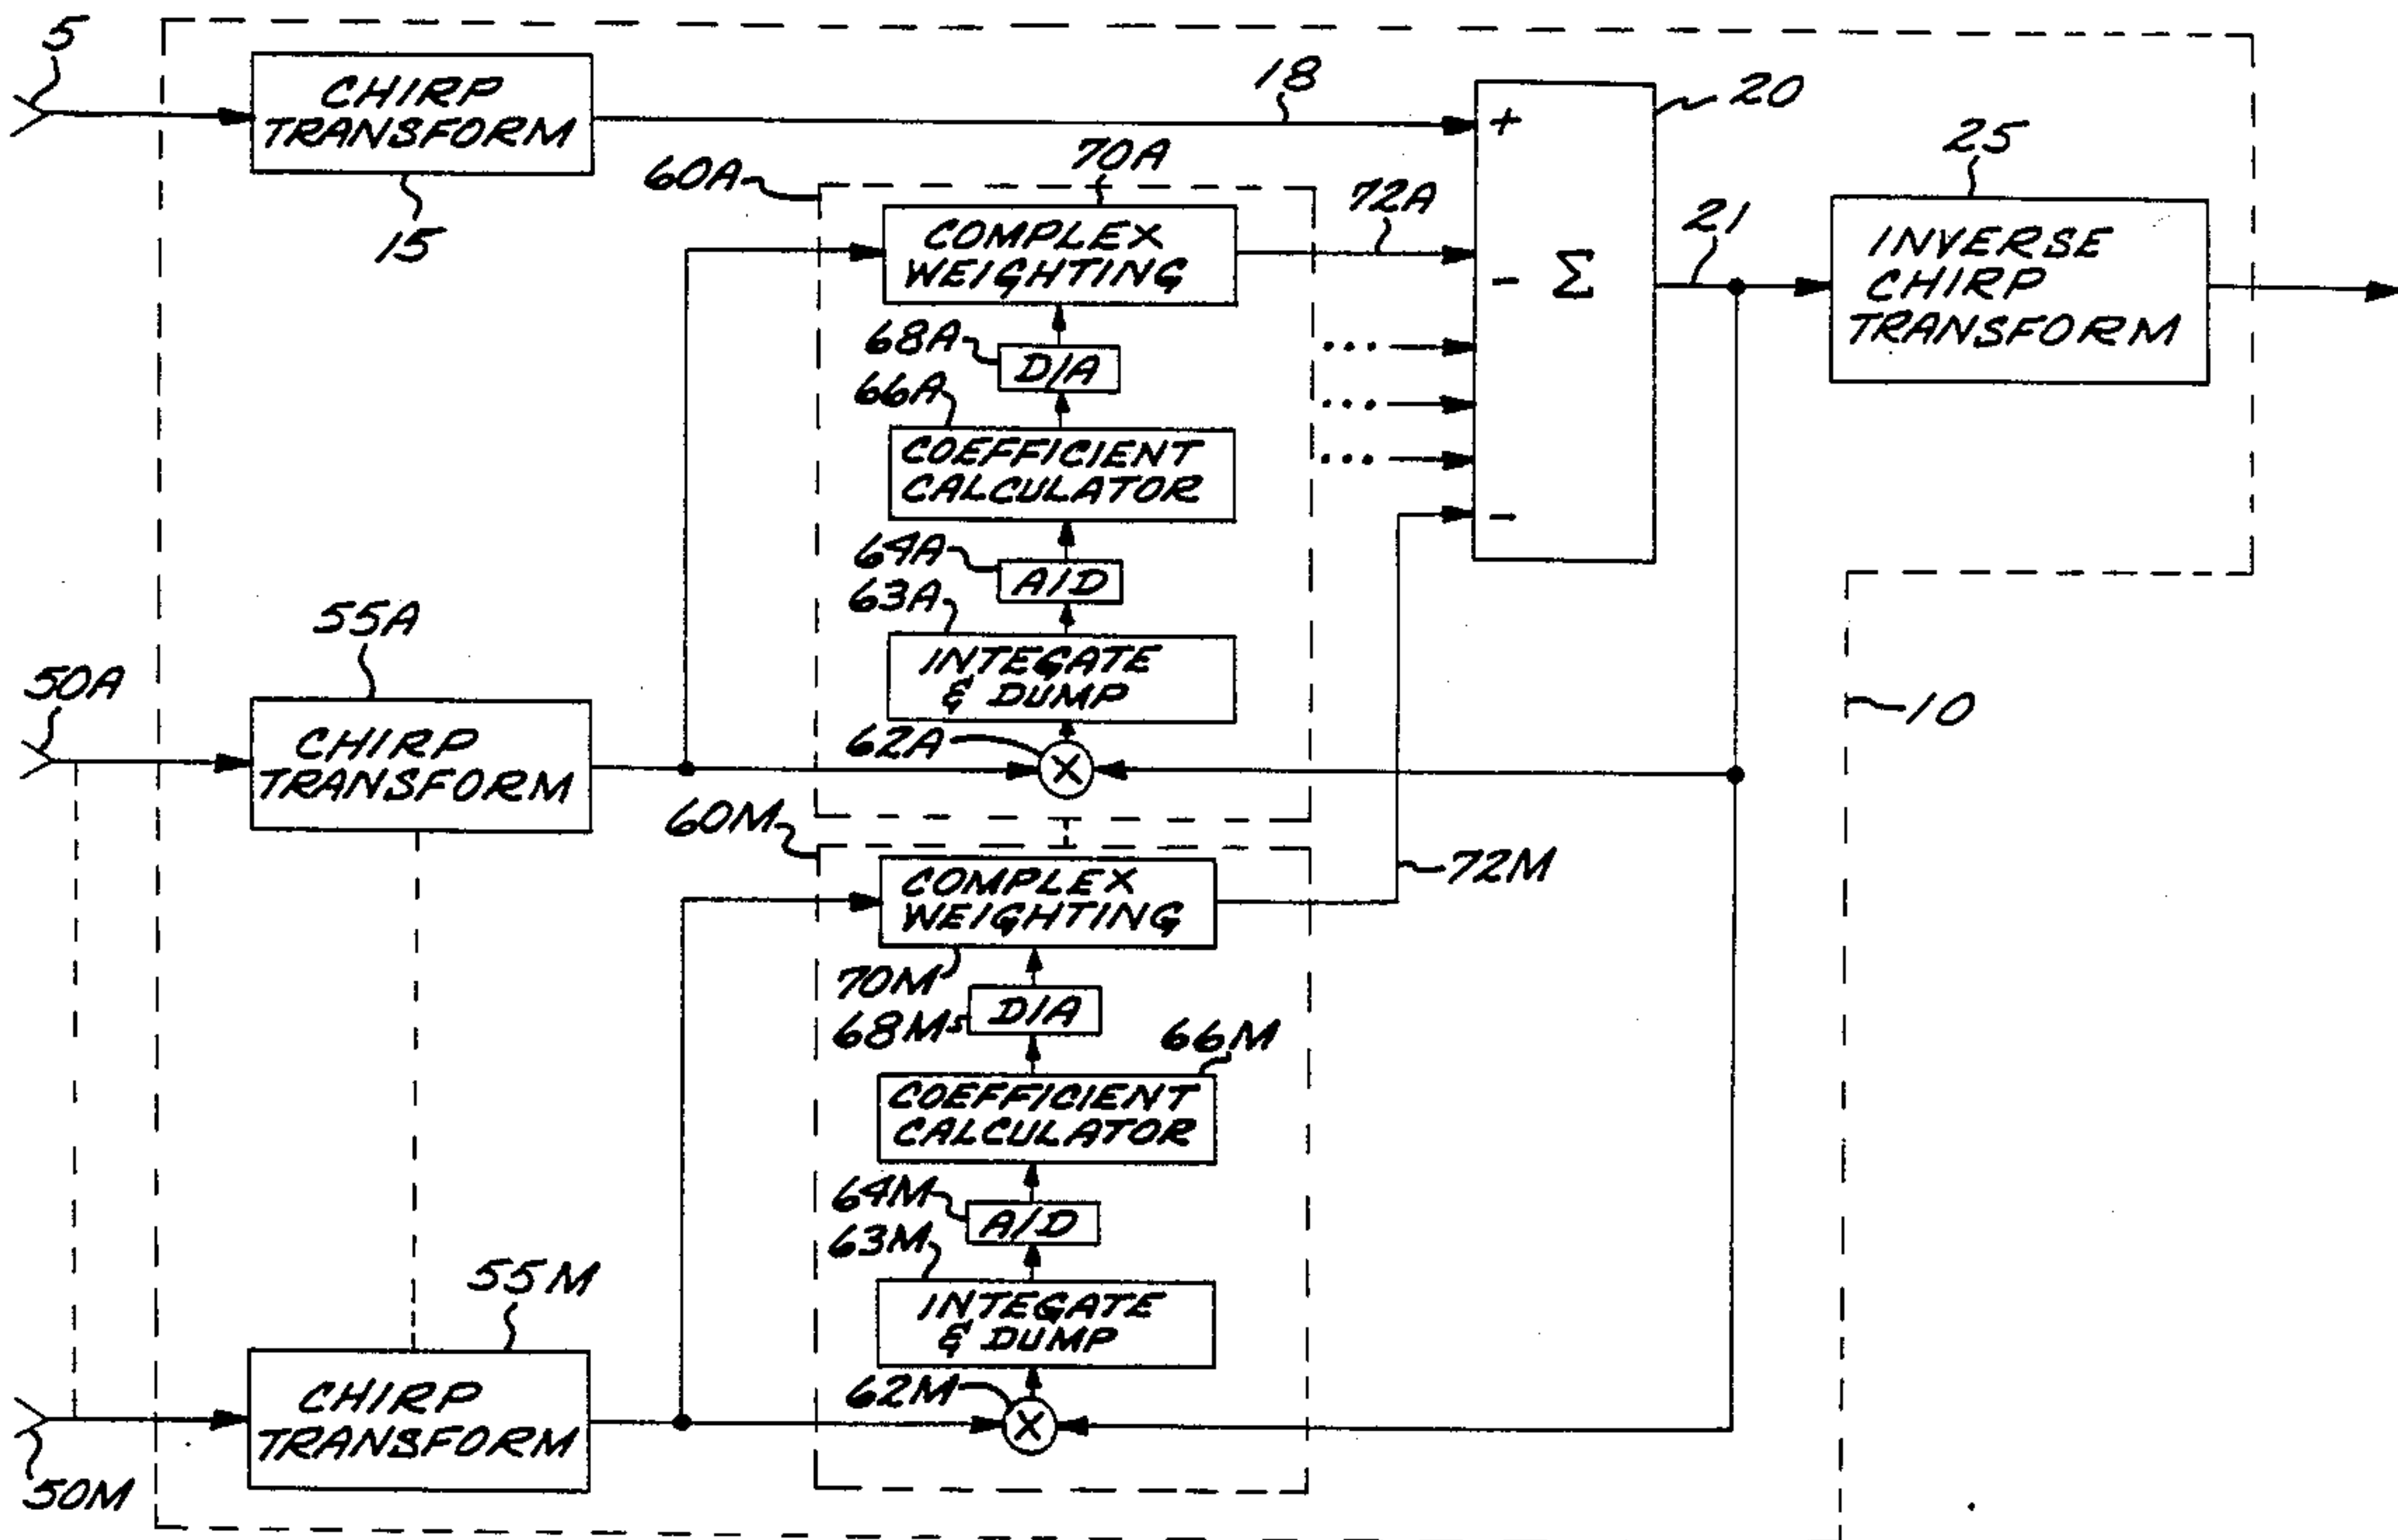 5
CHIRP
TRANSFORM
15
18
20
+
-
Σ
-
60A
70A
COMPLEX
WEIGHTING
72A
21
25
INVERSE
CHIRP
TRANSFORM
68A
D/A
66A
COEFFICIENT
CALCULATOR
...
...
...
64A
A/D
63A
INTEGATE
& DUMP
62A
X
10
50A
55A
CHIRP
TRANSFORM
60M
COMPLEX
WEIGHTING
72M
70M
68M
D/A
66M
COEFFICIENT
CALCULATOR
64M
A/D
63M
INTEGATE
& DUMP
62M
X
55M
CHIRP
TRANSFORM
50M